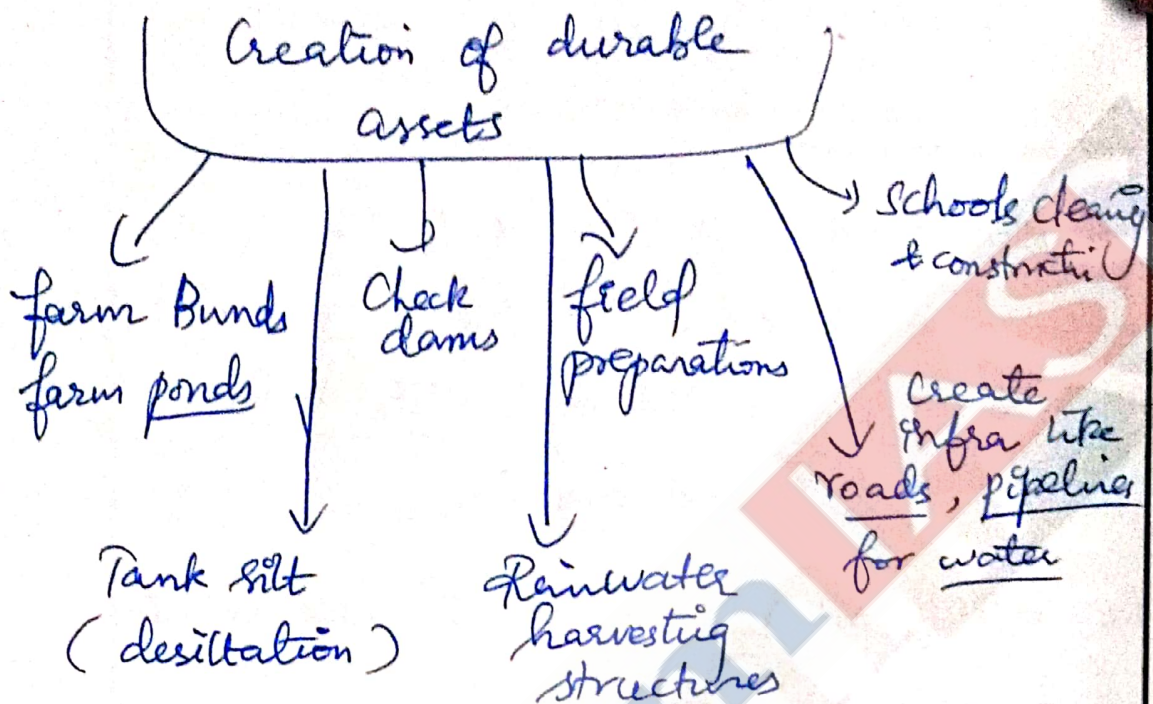 Creation of durable
assets
farm Bunds
farm ponds
Tank silt
(desiltation)
Check
dams
Rainwater
harvesting
structures
field
preparations
Create
infra like
roads, pipelines
for water
Schools
& constructi
IAS
n